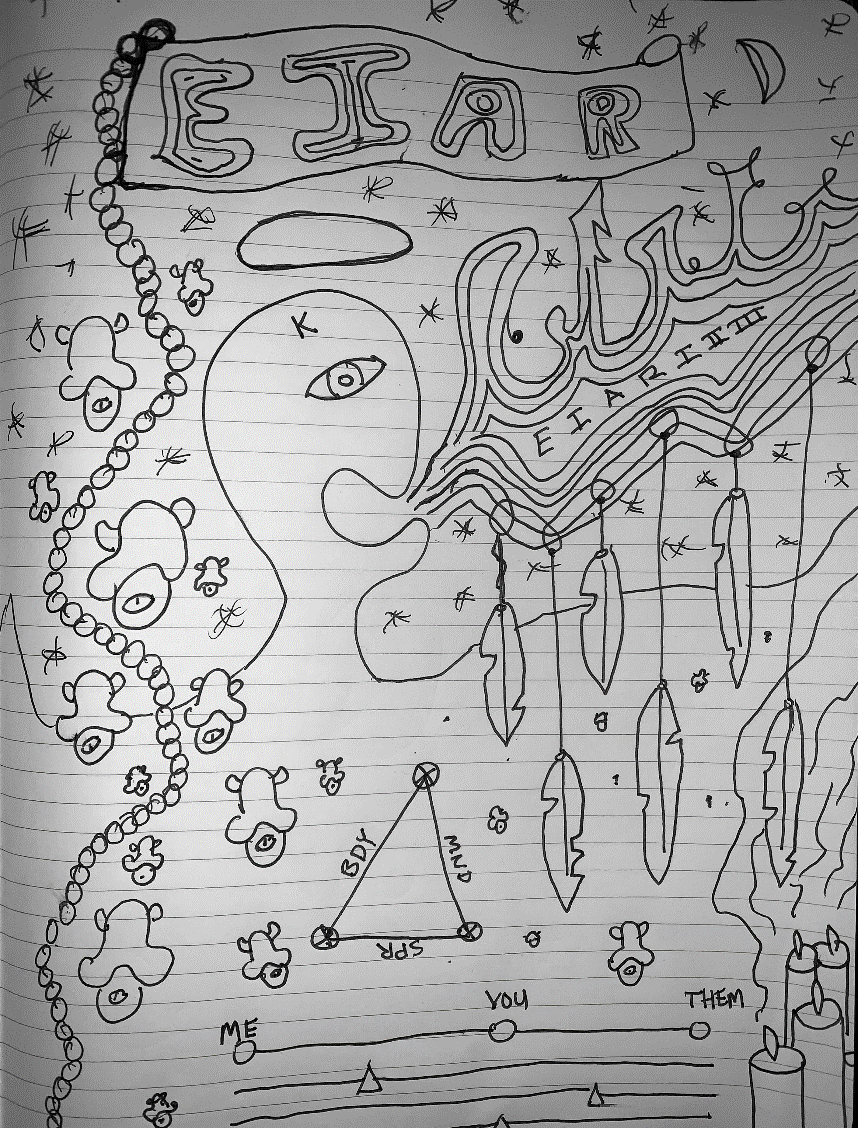 EIAR
K
EIARIIIIII
BDY
MND
SPR
ME
YOU
THEM